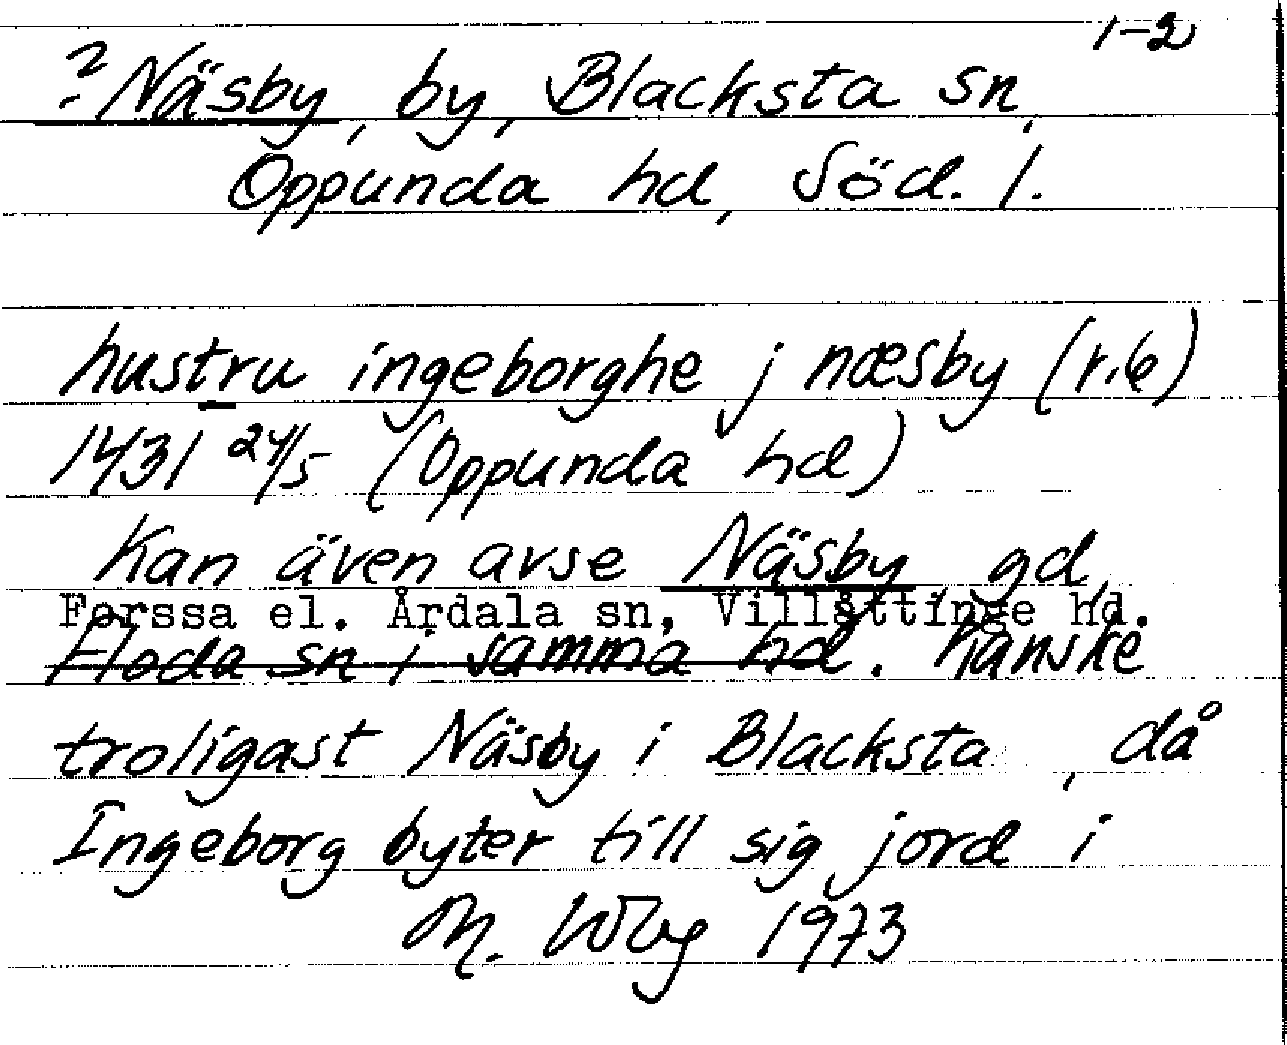 1-2
? Näsby, by, Blacksta sn,
Oppunda hd, Söd. l.
hustru ingeborghe j næsby (r.6)
1431 24/5 (Oppunda hd)
Kan även avse Näsby, gd,
Forssa el. Årdala sn, Villåttinge hd.
Floda sn i samma hd. Kanske
troligast Näsby i Blacksta, då
Ingeborg byter till sig jord i
M. Wbg 1973